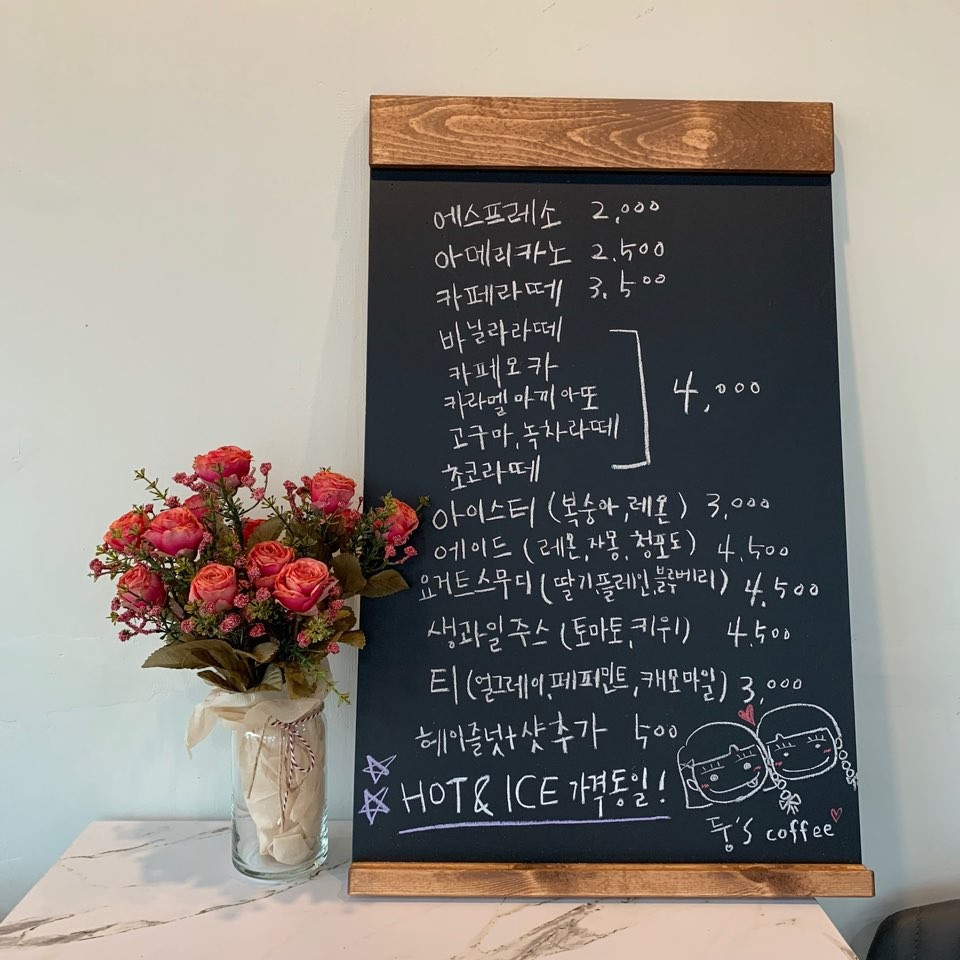 에스프레소 2,000
아메리카노 2,500
카페라떼 3,500
바닐라라떼
카페모카
카라멜마끼아또
고구마,녹차라떼
초코라떼
4,000
아이스티 (복숭아,레몬) 3,000
에이드 (레몬,자몽,청포도) 4,500
요거트스무디 (딸기,플레인,블루베리) 4,500
생과일주스 (토마토,키위) 4,500
티 (얼그레이,페퍼민트,캐모마일) 3,000
헤이즐넛+샷추가 500
HOT & ICE 가격동일!
뚱's coffee